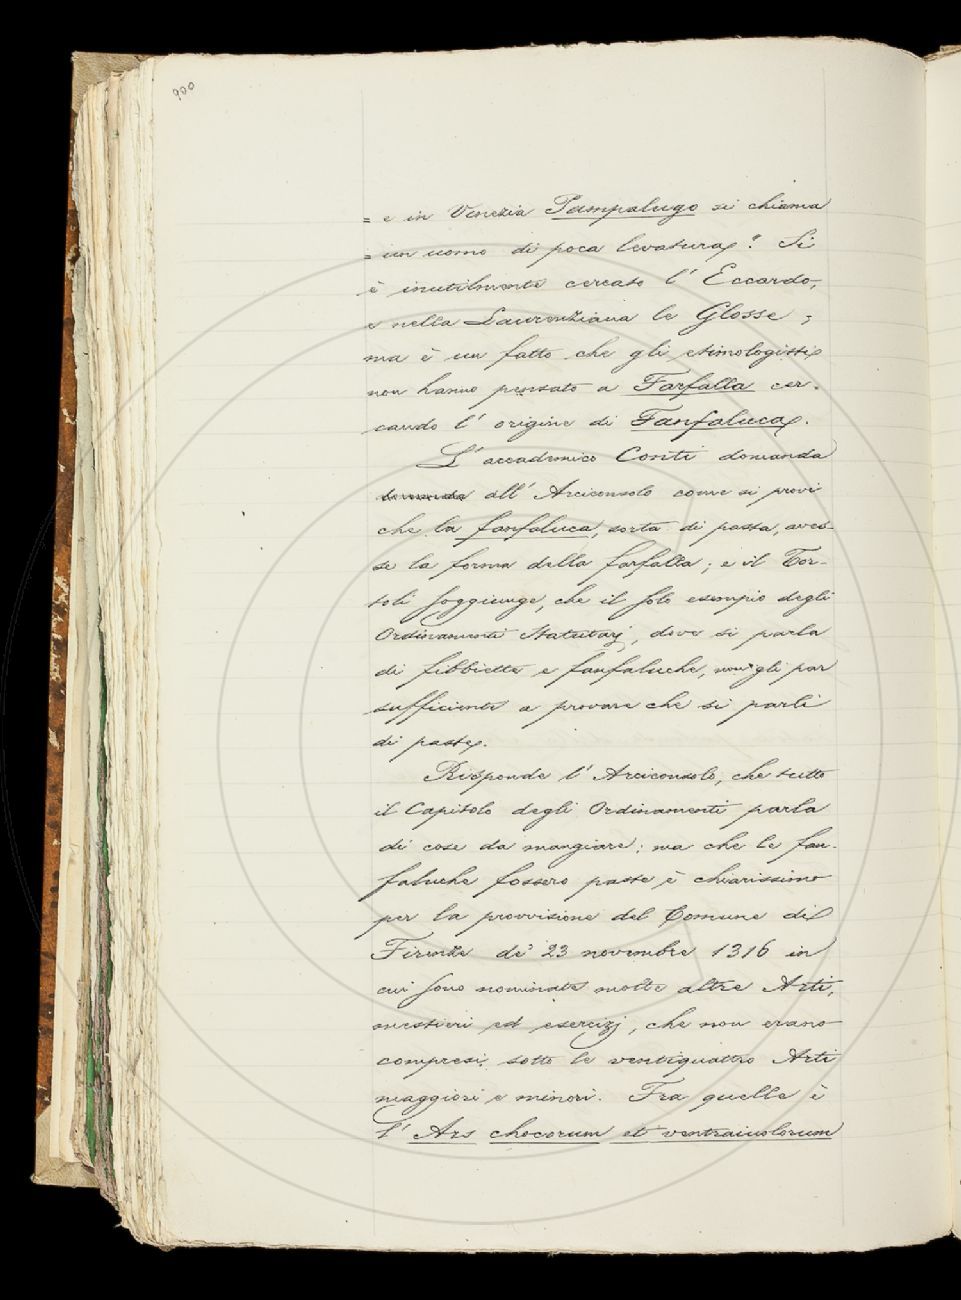 900
= e in Venezia Pampalugo si chiama
= un uomo di poca levatura". Si
è inutilmente cercato l'Eccardo,
e nella Laurenziana le Glosse;
ma è un fatto che gli etimologisti
non hanno pensato a Farfalla cer-
cando l'origine di Fanfaluca.
L'accademico Conti domanda
domanda all'Arciconsolo come si provi
che la fanfaluca, sorta di pasta, aves-
se la forma della farfalla; e il Tor-
toli soggiunge, che il solo esempio degli
Ordinamenti Statutarj, dove si parla
di fibbiette e fanfaluche, non gli par
sufficiente a provare che si parli
di paste.
Risponde l'Arciconsolo, che tutto
il Capitolo degli Ordinamenti parla
di cose da mangiare; ma che le fan-
faluche fossero paste è chiarissimo
per la provvisione del Comune di
Firenze de' 23 novembre 1316 in
cui sono nominate molte altre Arti,
mestieri ed esercizj, che non erano
compresi sotto le ventiquattro Arti
maggiori e minori. Fra quelle è
l'Ars chocorum et ventraiuolorum